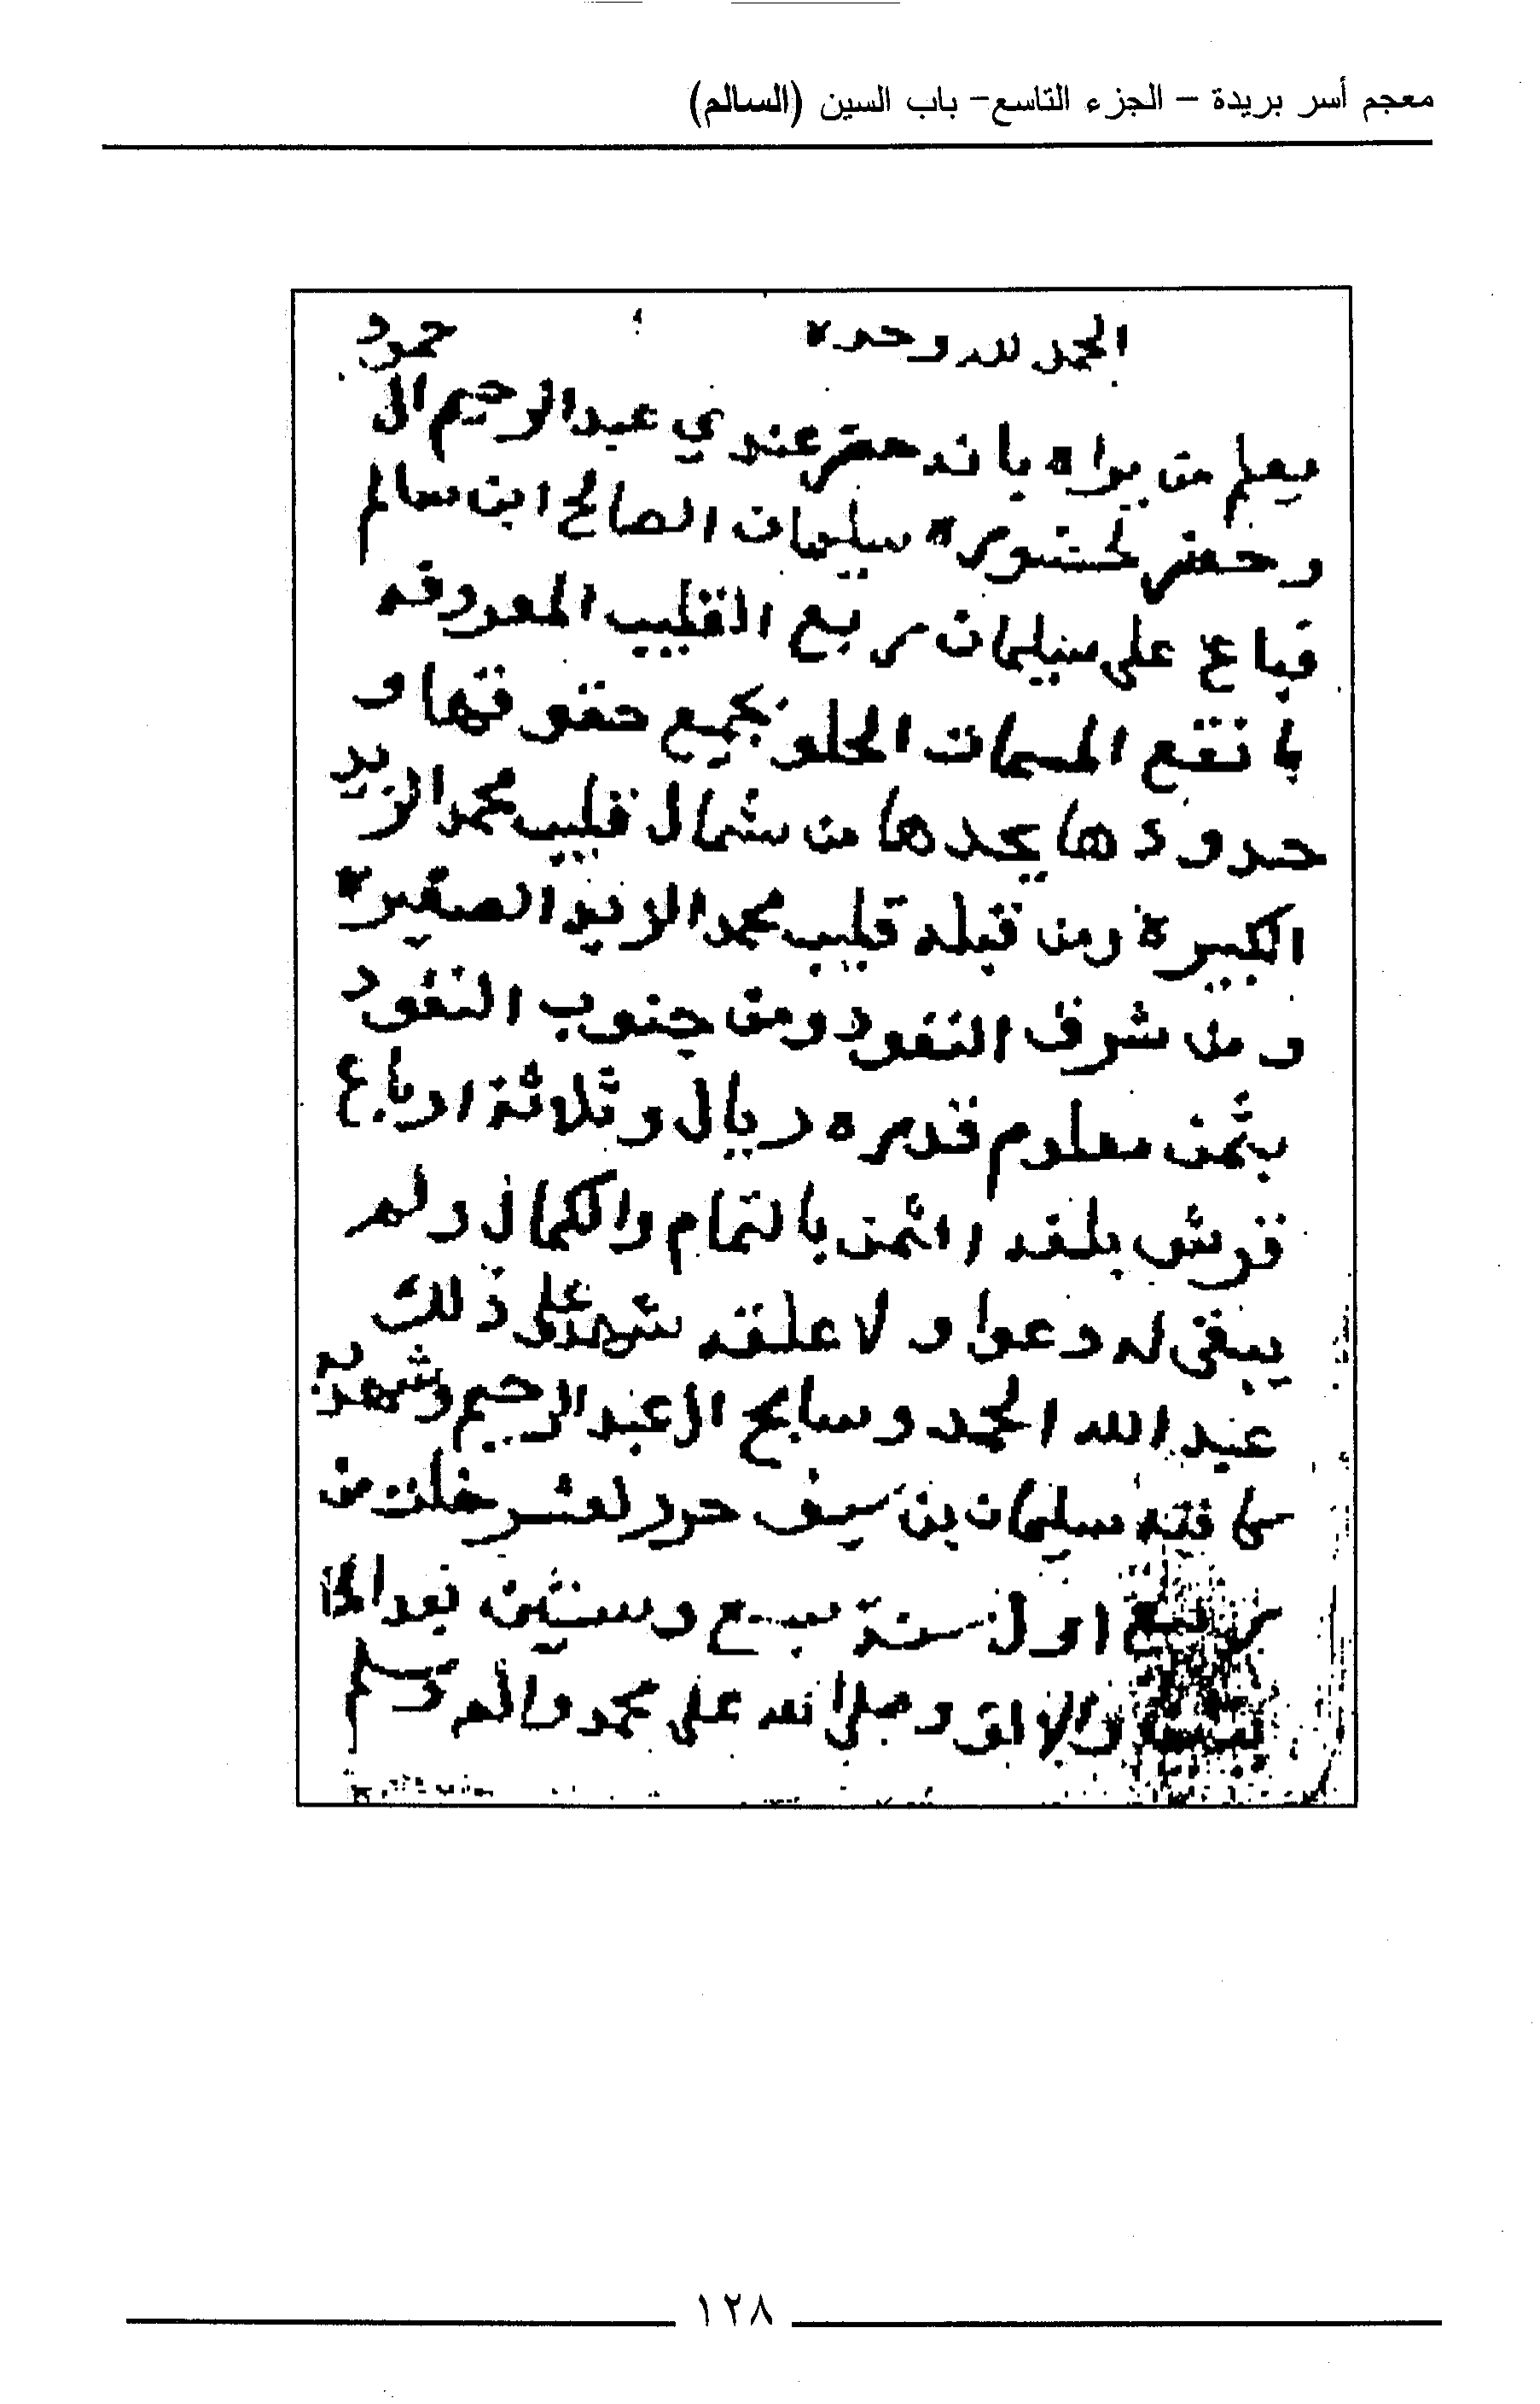 معجم أسر بريدة – الجزء التاسع– باب السين (السالم)
الحمد لله وحده
حمود
يعلم من يراه بانه حضر عندي عبدالرحيم ال
وحضر لحضوره سليمان الصالح ابن سالم
فباع على سليمان ربع القليب المعروفه
بانقع المسمات الحلو بجميع حقوقها و
حدودها يحدها من شمال قليب محمد الزيد
الكبيرة ومن قبله قليب محمد الزيد الصغيره
ومن شرق النفود ومن جنوب النفود
بثمن معلوم قدره ريال وثلاثة ارباع
قرش بلغه الثمن بالتمام والكمال ولم
يبقى له دعوا ولا علقه شهد على ذلك
عبد الله الحمد وسابح العبد الرحيم وشهد به
كاتبه سليمان بن سيف حرر لعشر خلت من
ربيع اول سنة سبع وستين بعد
والالف وصلى الله على محمد واله وسلم
١٢٨